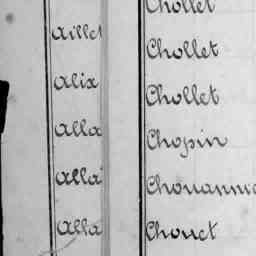 Chollet
Aillet Chollet
Alix Chollet
Alla Chopin
Alla Chouanni
Alla Chouet